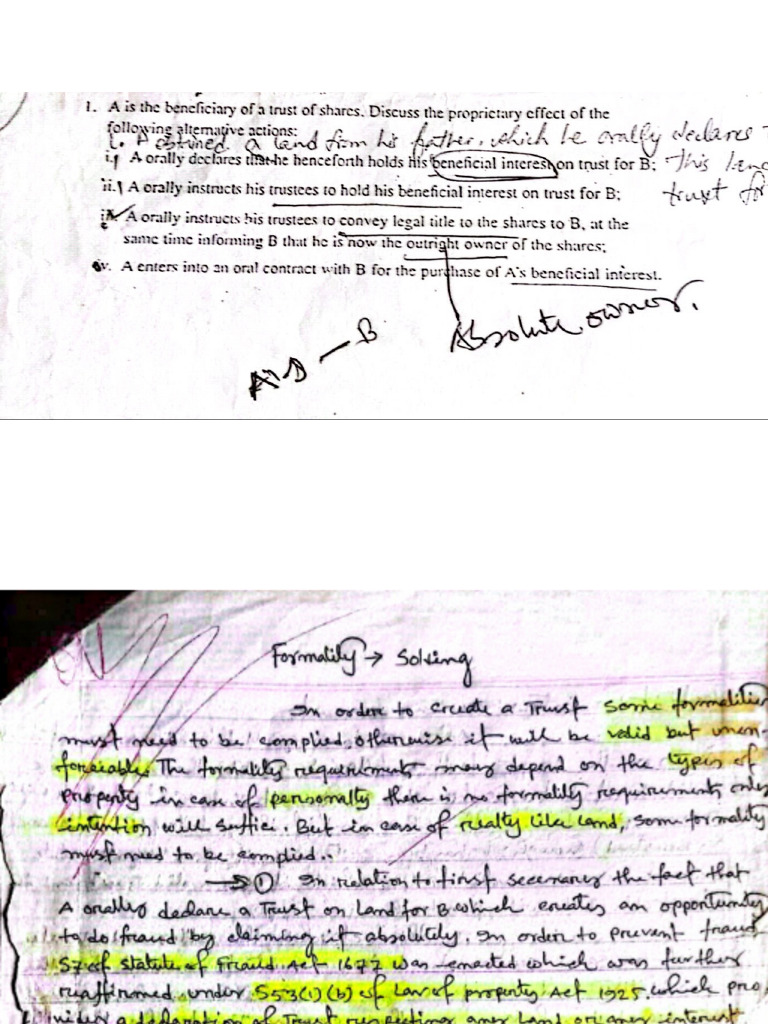 1. A is the beneficiary of a trust of shares. Discuss the proprietary effect of the
following alternative actions:
i. A obtained a land from his father, which he orally declares
i. A orally declares that he henceforth holds his beneficial interest on trust for B; This land
ii. A orally instructs his trustees to hold his beneficial interest on trust for B; trust for
A orally instructs his trustees to convey legal title to the shares to B, at the
same time informing B that he is now the outright owner of the shares;
iv. A enters into an oral contract with B for the purchase of A's beneficial interest.
Absolute owner.
B
Formality → Solving
In order to create a Trust some formalities
must need to be complied, otherwise it will be valid but unen-
forceable. The formality requirements may depend on the types of
property in case of personalty there is no formality requirements only
intention will suffice. But in case of realty like land, some formality
must need to be complied..
→ ① In relation to first scenerey the fact that
A orally declare a Trust on land for B which creates an opportunity
to do fraud by claiming it absolutely. In order to prevent fraud
S7 of Statute of Fraud Act 1677 was enacted which was further
reaffirmed under S53(1)(b) of Law of property Act 1925. which pro
vides a declaration of Trust respecting any Land or any interest